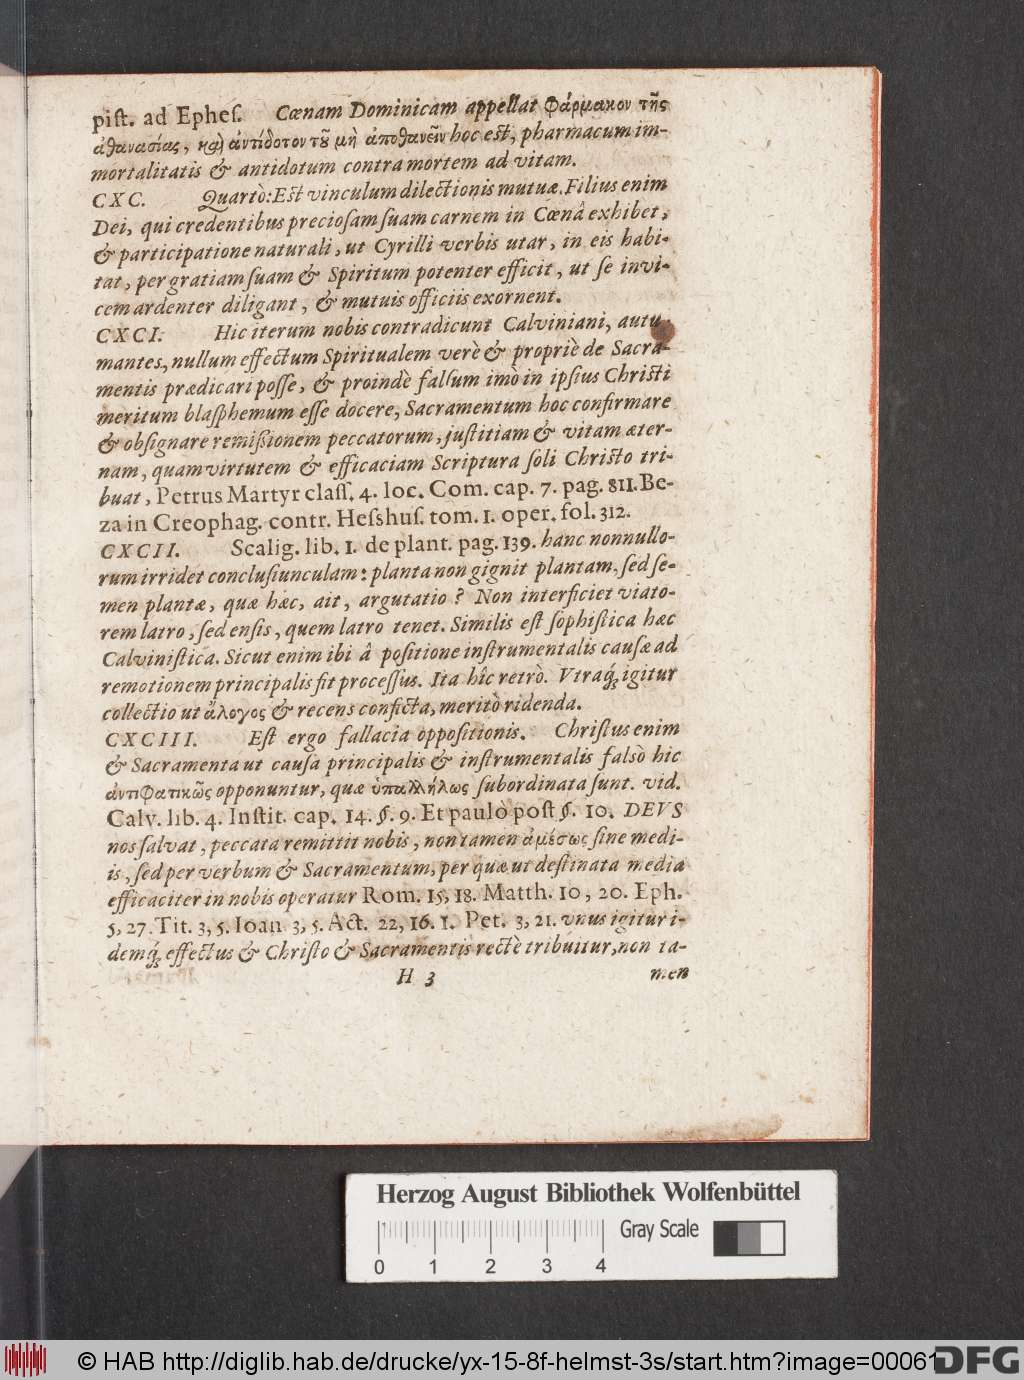 piſt. ad Epheſ. Cœnam Dominicam appellat φάρμακον τῆς
ἀθανασίας, καὶ ἀντίδοτον τοῦ μὴ ἀποθανεῖν hoc eſt, pharmacum im-
mortalitatis & antidotum contra mortem ad vitam.
CXC. Quartò: Eſt vinculum dilectionis mutuæ. Filius enim
Dei, qui credentibus precioſam ſuam carnem in Cœnâ exhibet,
& participatione naturali, ut Cyrilli verbis utar, in eis habi-
tat, per gratiam ſuam & Spiritum potenter efficit, ut ſe invi-
cem ardenter diligant, & mutuis officiis exornent.
CXCI. Hic iterum nobis contradicunt Calviniani, autu-
mantes, nullum effectum Spiritualem verè & propriè de Sacra-
mentis prædicari poſſe, & proindè falſum imò in ipſius Chriſti
meritum blaſphemum eſſe docere, Sacramentum hoc confirmare
& obſignare remiſsionem peccatorum, juſtitiam & vitam æter-
nam, quam virtutem & efficaciam Scriptura ſoli Chriſto tri-
buat, Petrus Martyr claſſ. 4. loc. Com. cap. 7. pag. 811. Be-
za in Creophag. contr. Heſshuſ. tom. 1. oper. fol. 312.
CXCII. Scalig. lib. 1. de plant. pag. 139. hanc nonnullo-
rum irridet concluſiunculam: planta non gignit plantam, ſed ſe-
men plantæ, quæ hæc, ait, argutatio? Non interficiet viato-
rem latro, ſed enſis, quem latro tenet. Similis eſt ſophiſtica hæc
Calviniſtica. Sicut enim ibi â poſitione inſtrumentalis cauſæ ad
remotionem principalis fit proceſſus. Ita hîc retrò. Vtraq́; igitur
collectio ut ἄλογος & recens conficta, meritò ridenda.
CXCIII. Eſt ergo fallacia oppoſitionis. Chriſtus enim
& Sacramenta ut cauſa principalis & inſtrumentalis falsò hic
ἀντιφατικῶς opponuntur, quæ ὑπαλλήλως ſubordinata ſunt. vid.
Calv. lib. 4. Inſtit. cap. 14. §. 9. Et paulò poſt §. 10. DEVS
nos ſalvat, peccata remittit nobis, non tamen ἀμέσως ſine medi-
is, ſed per verbum & Sacramentum, per quæ ut deſtinata media
efficaciter in nobis operatur Rom. 15, 18. Matth. 10, 20. Eph.
5, 27. Tit. 3, 5. Ioan 3, 5. Act. 22, 16. 1. Pet. 3, 21. vnus igitur i-
demq́; effectus & Chriſto & Sacramentis rectè tribuitur, non ta-
H 3 men
Herzog August Bibliothek Wolfenbüttel
Gray Scale
0 1 2 3 4
© HAB http://diglib.hab.de/drucke/yx-15-8f-helmst-3s/start.htm?image=00061
DFG